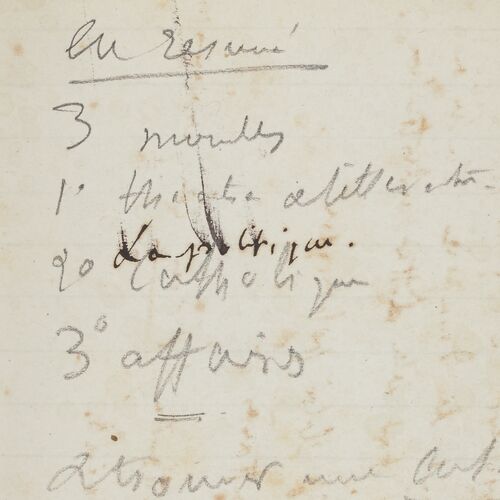 en resumé
3 mondes
1º theatre & litterature
La politique.
2º Catholique
3º affaires
retrouver une